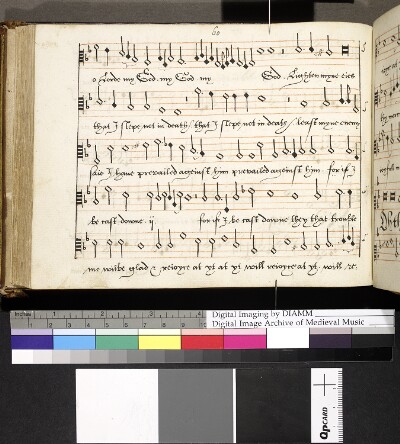 60
o Lorde my God. my God. my God. lighten myne eies
that I slepe not in death / that I slepe not in death / least myne enemy
said I haue prevailed against hym prevailed against hym for if I
be cast downe. ij. for if I be cast downe they that trouble
me wilbe glad & reioyce at yt at yt will reioyce at yt. will re.
inches 1 2 3 4
Digital Imaging by DIAMM
Digital Image Archive of Medieval Music
QPCARD